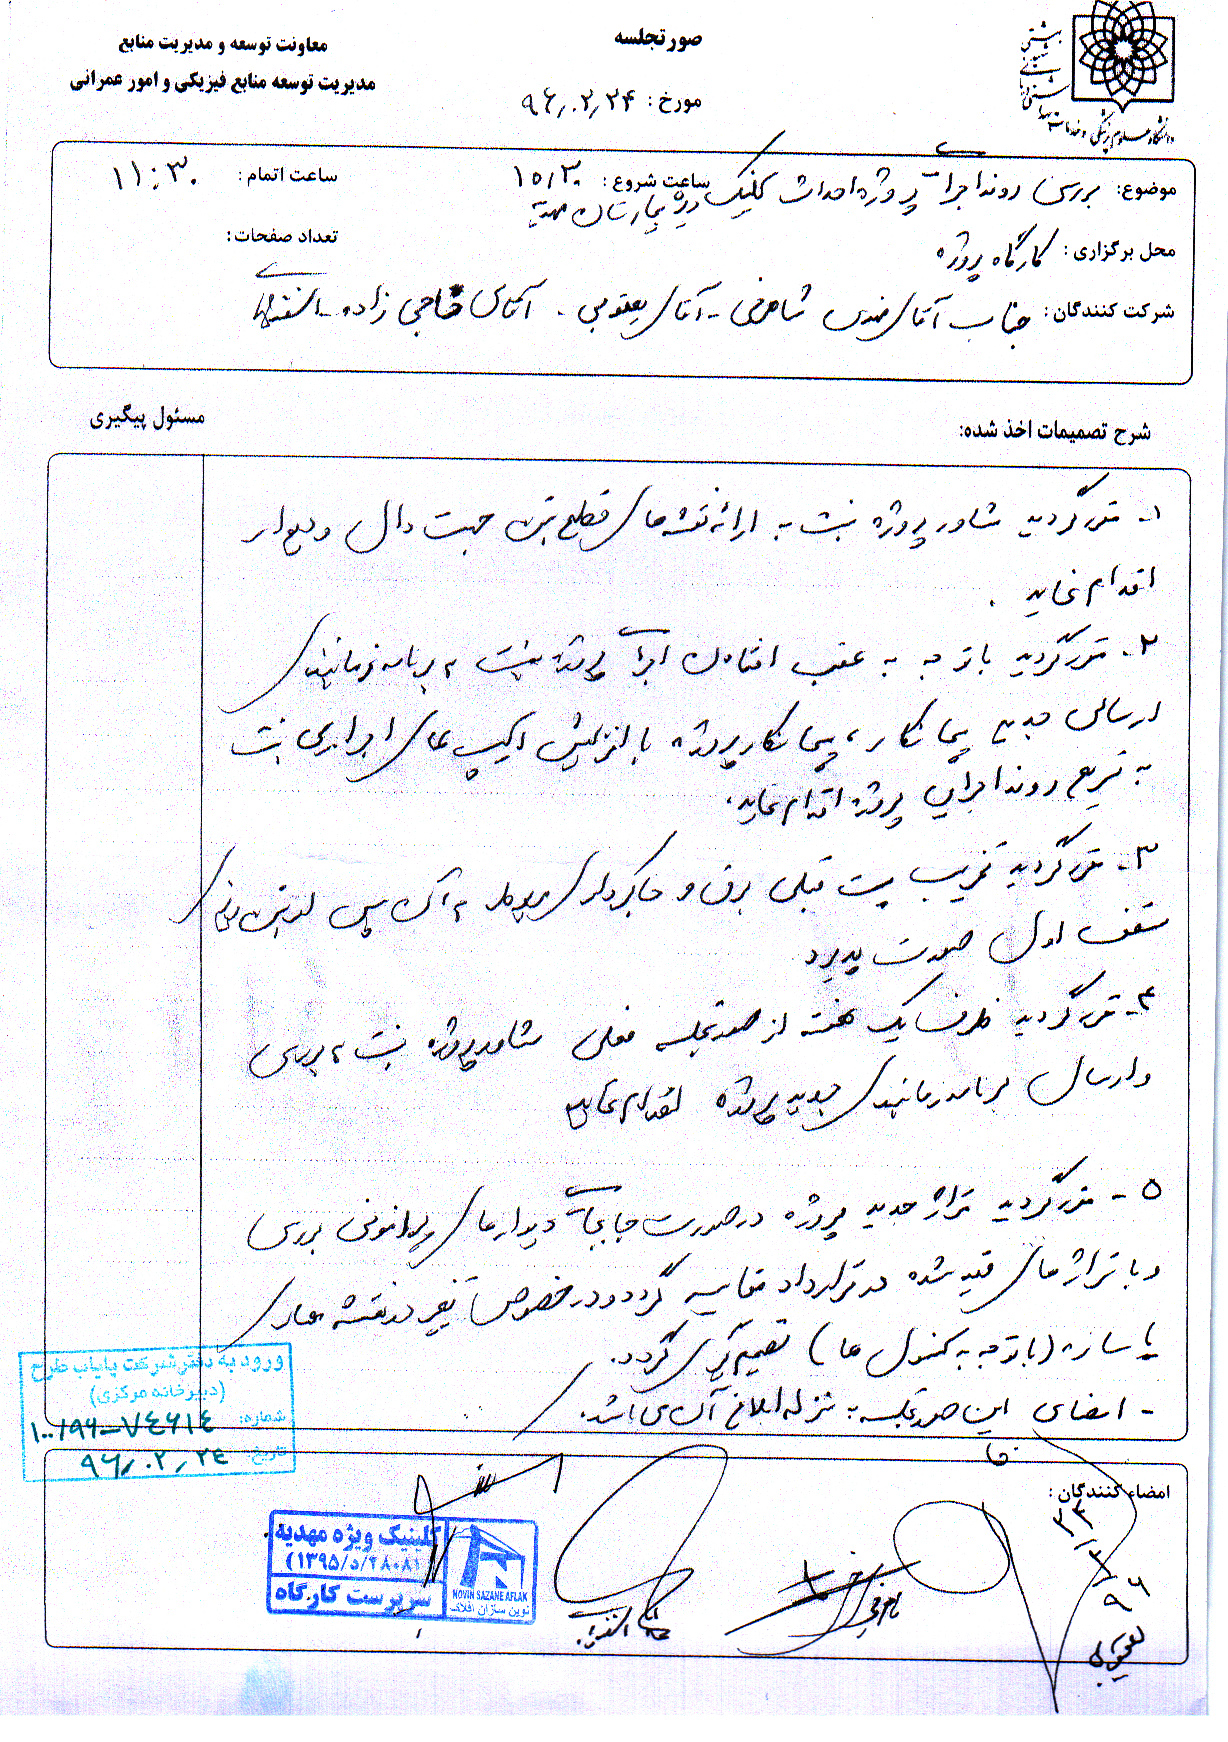 صورتجلسه
معاونت توسعه و مدیریت منابع
مدیریت توسعه منابع فیزیکی و امور عمرانی
مورخ: ۹۶,۰۲,۲۴
دانشگاه علوم پزشکی و خدمات
موضوع: بررسی روند اجرای پروژه احداث کلینیک ویژه بیمارستان مهدیه
ساعت شروع: ۱۰:۳۰
ساعت اتمام: ۱۱:۳۰
محل برگزاری: کارگاه پروژه
تعداد صفحات:
شرکت کنندگان: جناب آقای مهندس شاهرخی - آقای یعقوبی - آقای حاجی زاده -
شرح تصمیمات اخذ شده:
مسئول پیگیری
۱- مقرر گردید مشاور پروژه نسبت به ارائه نقشه های قطع بتن جهت دال و دیوار
اقدام نماید .
۲- مقرر گردید با توجه به عقب افتادن اجرای پروژه نسبت به برنامه زمانبندی
ارسالی جدید پیمانکار، پیمانکار پروژه با افزایش اکیپ های اجرایی نسبت
به تسریع روند اجرایی پروژه اقدام نماید.
۳- مقرر گردید تخریب پست قبلی برق و خاکبرداری مربوط به آن پس از بتن ریزی
سقف اول صورت پذیرد
۴- مقرر گردید ظرف یک هفته از صورتجلسه فعلی مشاور پروژه نسبت به بررسی
و ارسال برنامه زمانبندی جدید پروژه اقدام نماید
۵- مقرر گردید تراز جدید پروژه در صورت جابجایی دیوارهای پیرامونی بررسی
و با ترازهای قید شده در قرارداد مقایسه گردد و در خصوص تغییر در نقشه معماری
یا سازه (با توجه به کنسول ها) تصمیم گیری گردد.
- امضای این صورتجلسه به منزله ابلاغ آن می باشد.
ورود به دفتر شرکت پایاب طرح
(دبیرخانه مرکزی)
شماره: ۱۰۰/۹۶-۷۴۶۱۴
تاریخ: ۹۶,۰۲,۲۴
امضاء کنندگان:
۹۶/۲/۲۴
یعقوبی
شاهرخی
کلینیک ویژه مهدیه
(۱۳۹۵/د/۲۸۰۸)
سرپرست کارگاه
NOVIN SAZANE AFLAK
نوین سازان افلاک